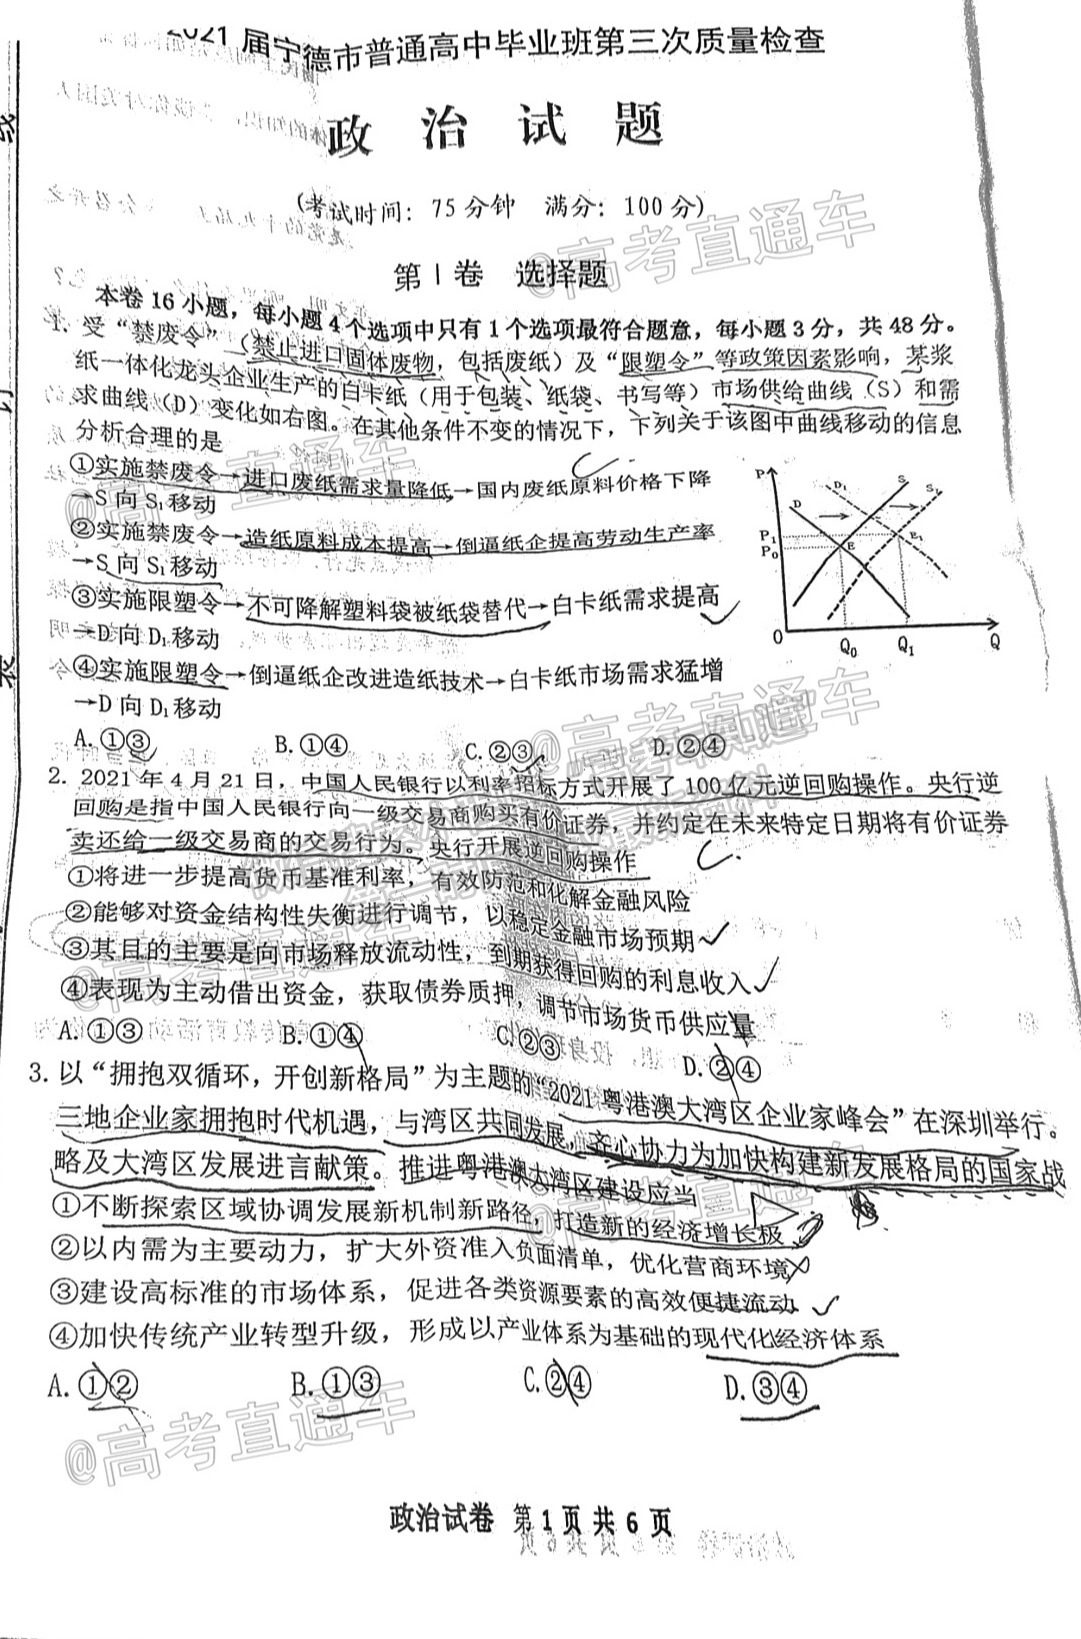 2021届宁德市普通高中毕业班第三次质量检查
政 治 试 题
(考试时间：75分钟 满分：100分)
第Ⅰ卷 选择题
本卷16小题，每小题4个选项中只有1个选项最符合题意，每小题3分，共48分。
1. 受“禁废令”（禁止进口固体废物，包括废纸）及“限塑令”等政策因素影响，某浆
纸一体化龙头企业生产的白卡纸（用于包装、纸袋、书写等）市场供给曲线（S）和需
求曲线（D）变化如右图。在其他条件不变的情况下，下列关于该图中曲线移动的信息
分析合理的是
①实施禁废令→进口废纸需求量降低→国内废纸原料价格下降
→S向S₁移动
②实施禁废令→造纸原料成本提高→倒逼纸企提高劳动生产率
→S向S₁移动
③实施限塑令→不可降解塑料袋被纸袋替代→白卡纸需求提高
→D向D₁移动
④实施限塑令→倒逼纸企改进造纸技术→白卡纸市场需求猛增
→D向D₁移动
P D D₁ S S₁
P₁ P₀ E E₁
0 Q₀ Q₁ Q
A.①③ B.①④ C.②③ D.②④
2. 2021年4月21日，中国人民银行以利率招标方式开展了100亿元逆回购操作。央行逆
回购是指中国人民银行向一级交易商购买有价证券，并约定在未来特定日期将有价证券
卖还给一级交易商的交易行为。央行开展逆回购操作
①将进一步提高货币基准利率，有效防范和化解金融风险
②能够对资金结构性失衡进行调节，以稳定金融市场预期
③其目的主要是向市场释放流动性，到期获得回购的利息收入
④表现为主动借出资金，获取债券质押，调节市场货币供应量
A.①③ B.①④ C.②③ D.②④
3. 以“拥抱双循环，开创新格局”为主题的“2021粤港澳大湾区企业家峰会”在深圳举行。
三地企业家拥抱时代机遇，与湾区共同发展，齐心协力为加快构建新发展格局的国家战
略及大湾区发展进言献策。推进粤港澳大湾区建设应当
①不断探索区域协调发展新机制新路径，打造新的经济增长极
②以内需为主要动力，扩大外资准入负面清单，优化营商环境
③建设高标准的市场体系，促进各类资源要素的高效便捷流动
④加快传统产业转型升级，形成以产业体系为基础的现代化经济体系
A.①② B.①③ C.②④ D.③④
政治试卷 第1页共6页
@高考直通车
@高考直通车
@高考直通车
@高考直通车
@高考直通车
@高考直通车